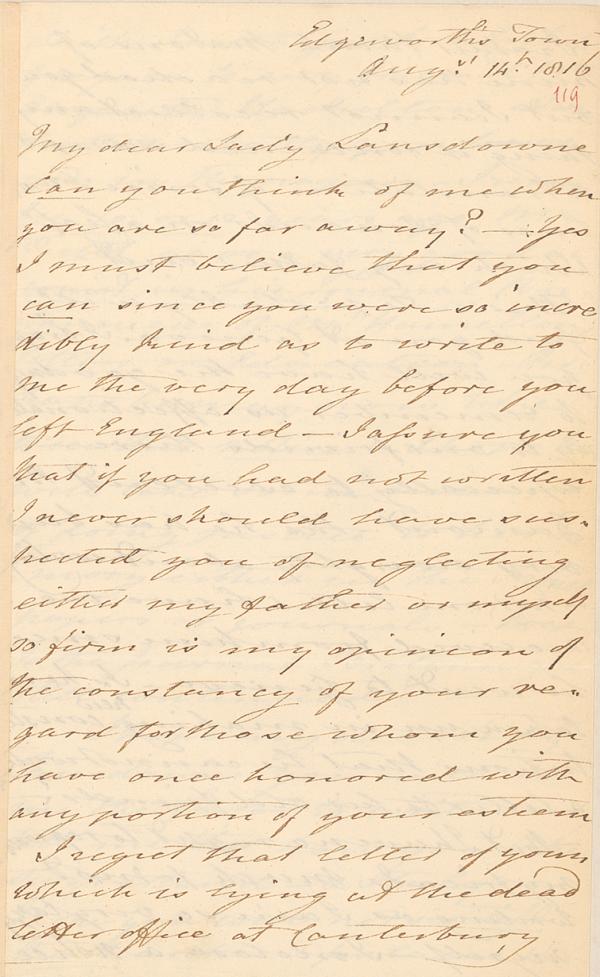 Edgeworth's Town
Augst. 14th. 1816
119
My dear Lady Lansdowne
Can you think of me when
you are so far away? — Yes
I must believe that you
can since you were so incre
dibly kind as to write to
me the very day before you
left England — I assure you
that if you had not written
I never should have sus-
pected you of neglecting
either my father or myself
so firm is my opinion of
the constancy of your re-
gard for those whom you
have once honored with
any portion of your esteem
I regret that letter of yours
which is lying at the dead
letter office at Canterbury